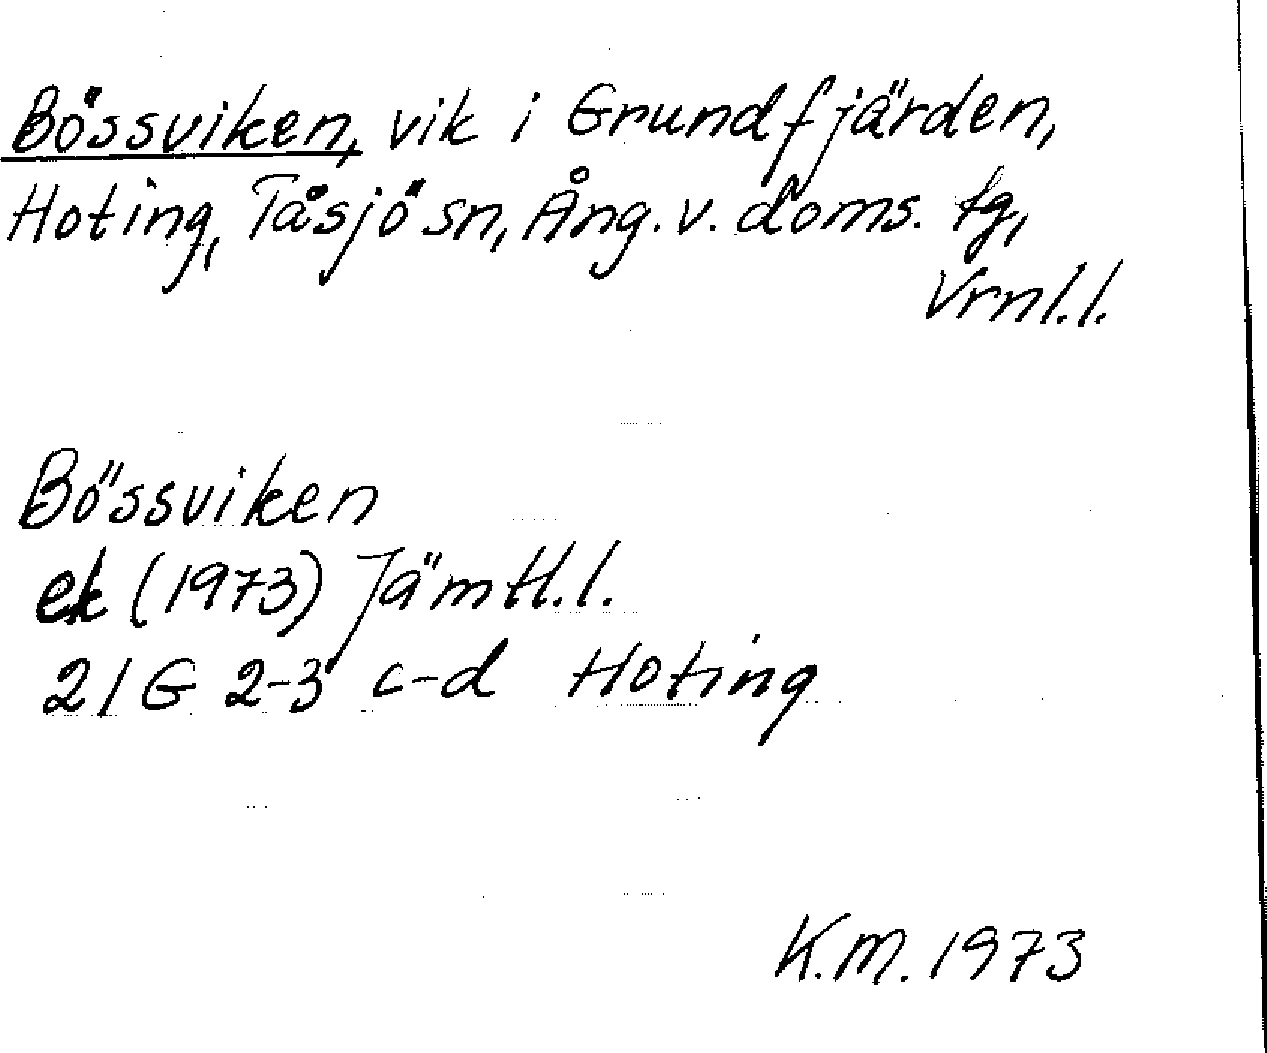 Bössviken, vik i Grundfjärden,
Hoting, Tåsjö sn, Ång. v. doms. tg,
Vrnl.l.
Bössviken
ek (1973) Jämtl.l.
21G 2-3 c-d Hoting
K.M. 1973